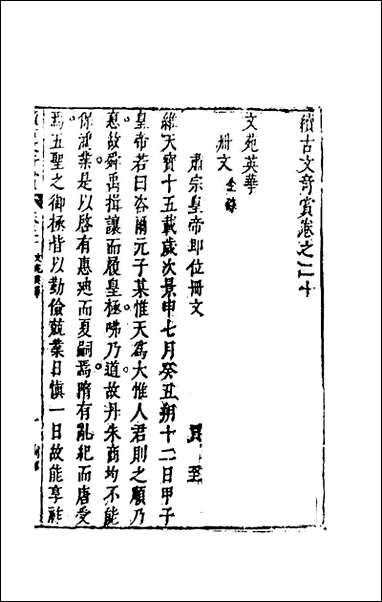 續古文奇賞卷之二十
文苑英華
冊文 全錄
肅宗皇帝卽位冊文 賈至
維天寶十五載歲次景申七月癸丑朔十二日甲子
皇帝若曰咨爾元子某惟天爲大惟人君則之順乃
惠故舜禹揖讓而履皇極咈乃道故丹朱商均不能
保鴻業是以啓有惠迪而夏嗣焉隋有亂紀而唐受
焉五聖之御極皆以勤儉兢業日慎一日故能享